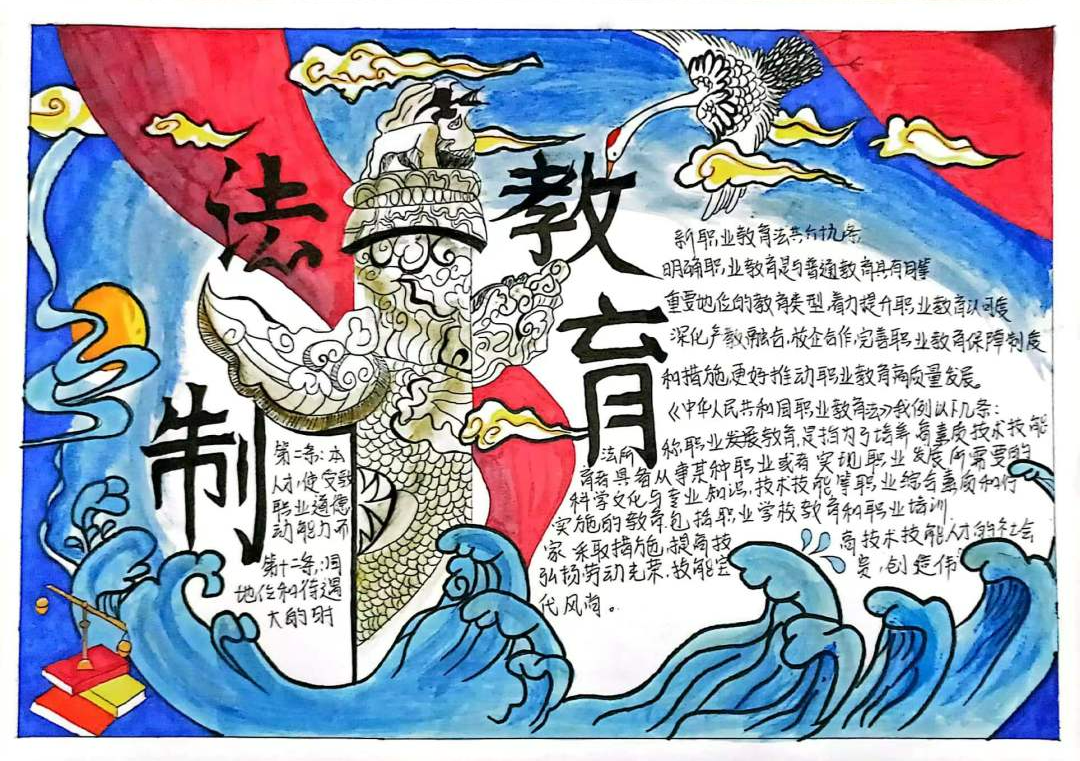 法制
教育
新职业教育法共六十九条
明确职业教育是与普通教育具有同等
重要地位的教育类型,着力提升职业教育认可度
深化产教融合,校企合作,完善职业教育保障制度
和措施,更好推动职业教育高质量发展。
《中华人民共和国职业教育法》例以下几条:
第二条:本
法所
称职业发展教育,是指为了培养高素质技术技能
人才,使受教
育者具备从事某种职业或者实现职业发展所需要的
职业道德
科学文化与专业知识,技术技能等职业综合素质和行
动能力而
实施的教育包括职业学校教育和职业培训
第十二条:国
家采取措施,提高技
术技能人才的社会
地位和待遇
弘扬劳动光荣,技能宝
贵,创造伟
大的时
代风尚。